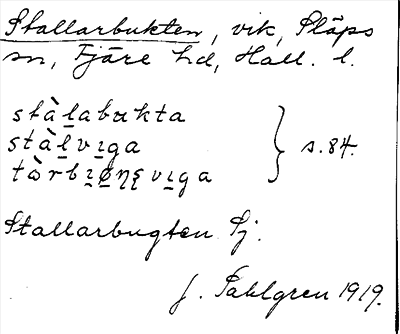 Stallarbukten, vik, Släps
sn, Fjäre hd, Hall. l.
stàḷabukta
stàḷvi̱ga } s. 84.
tòrbi̱ø̱ŋs̱vi̱ga
Stallarbugten Sj.
J. Sahlgren 1919.